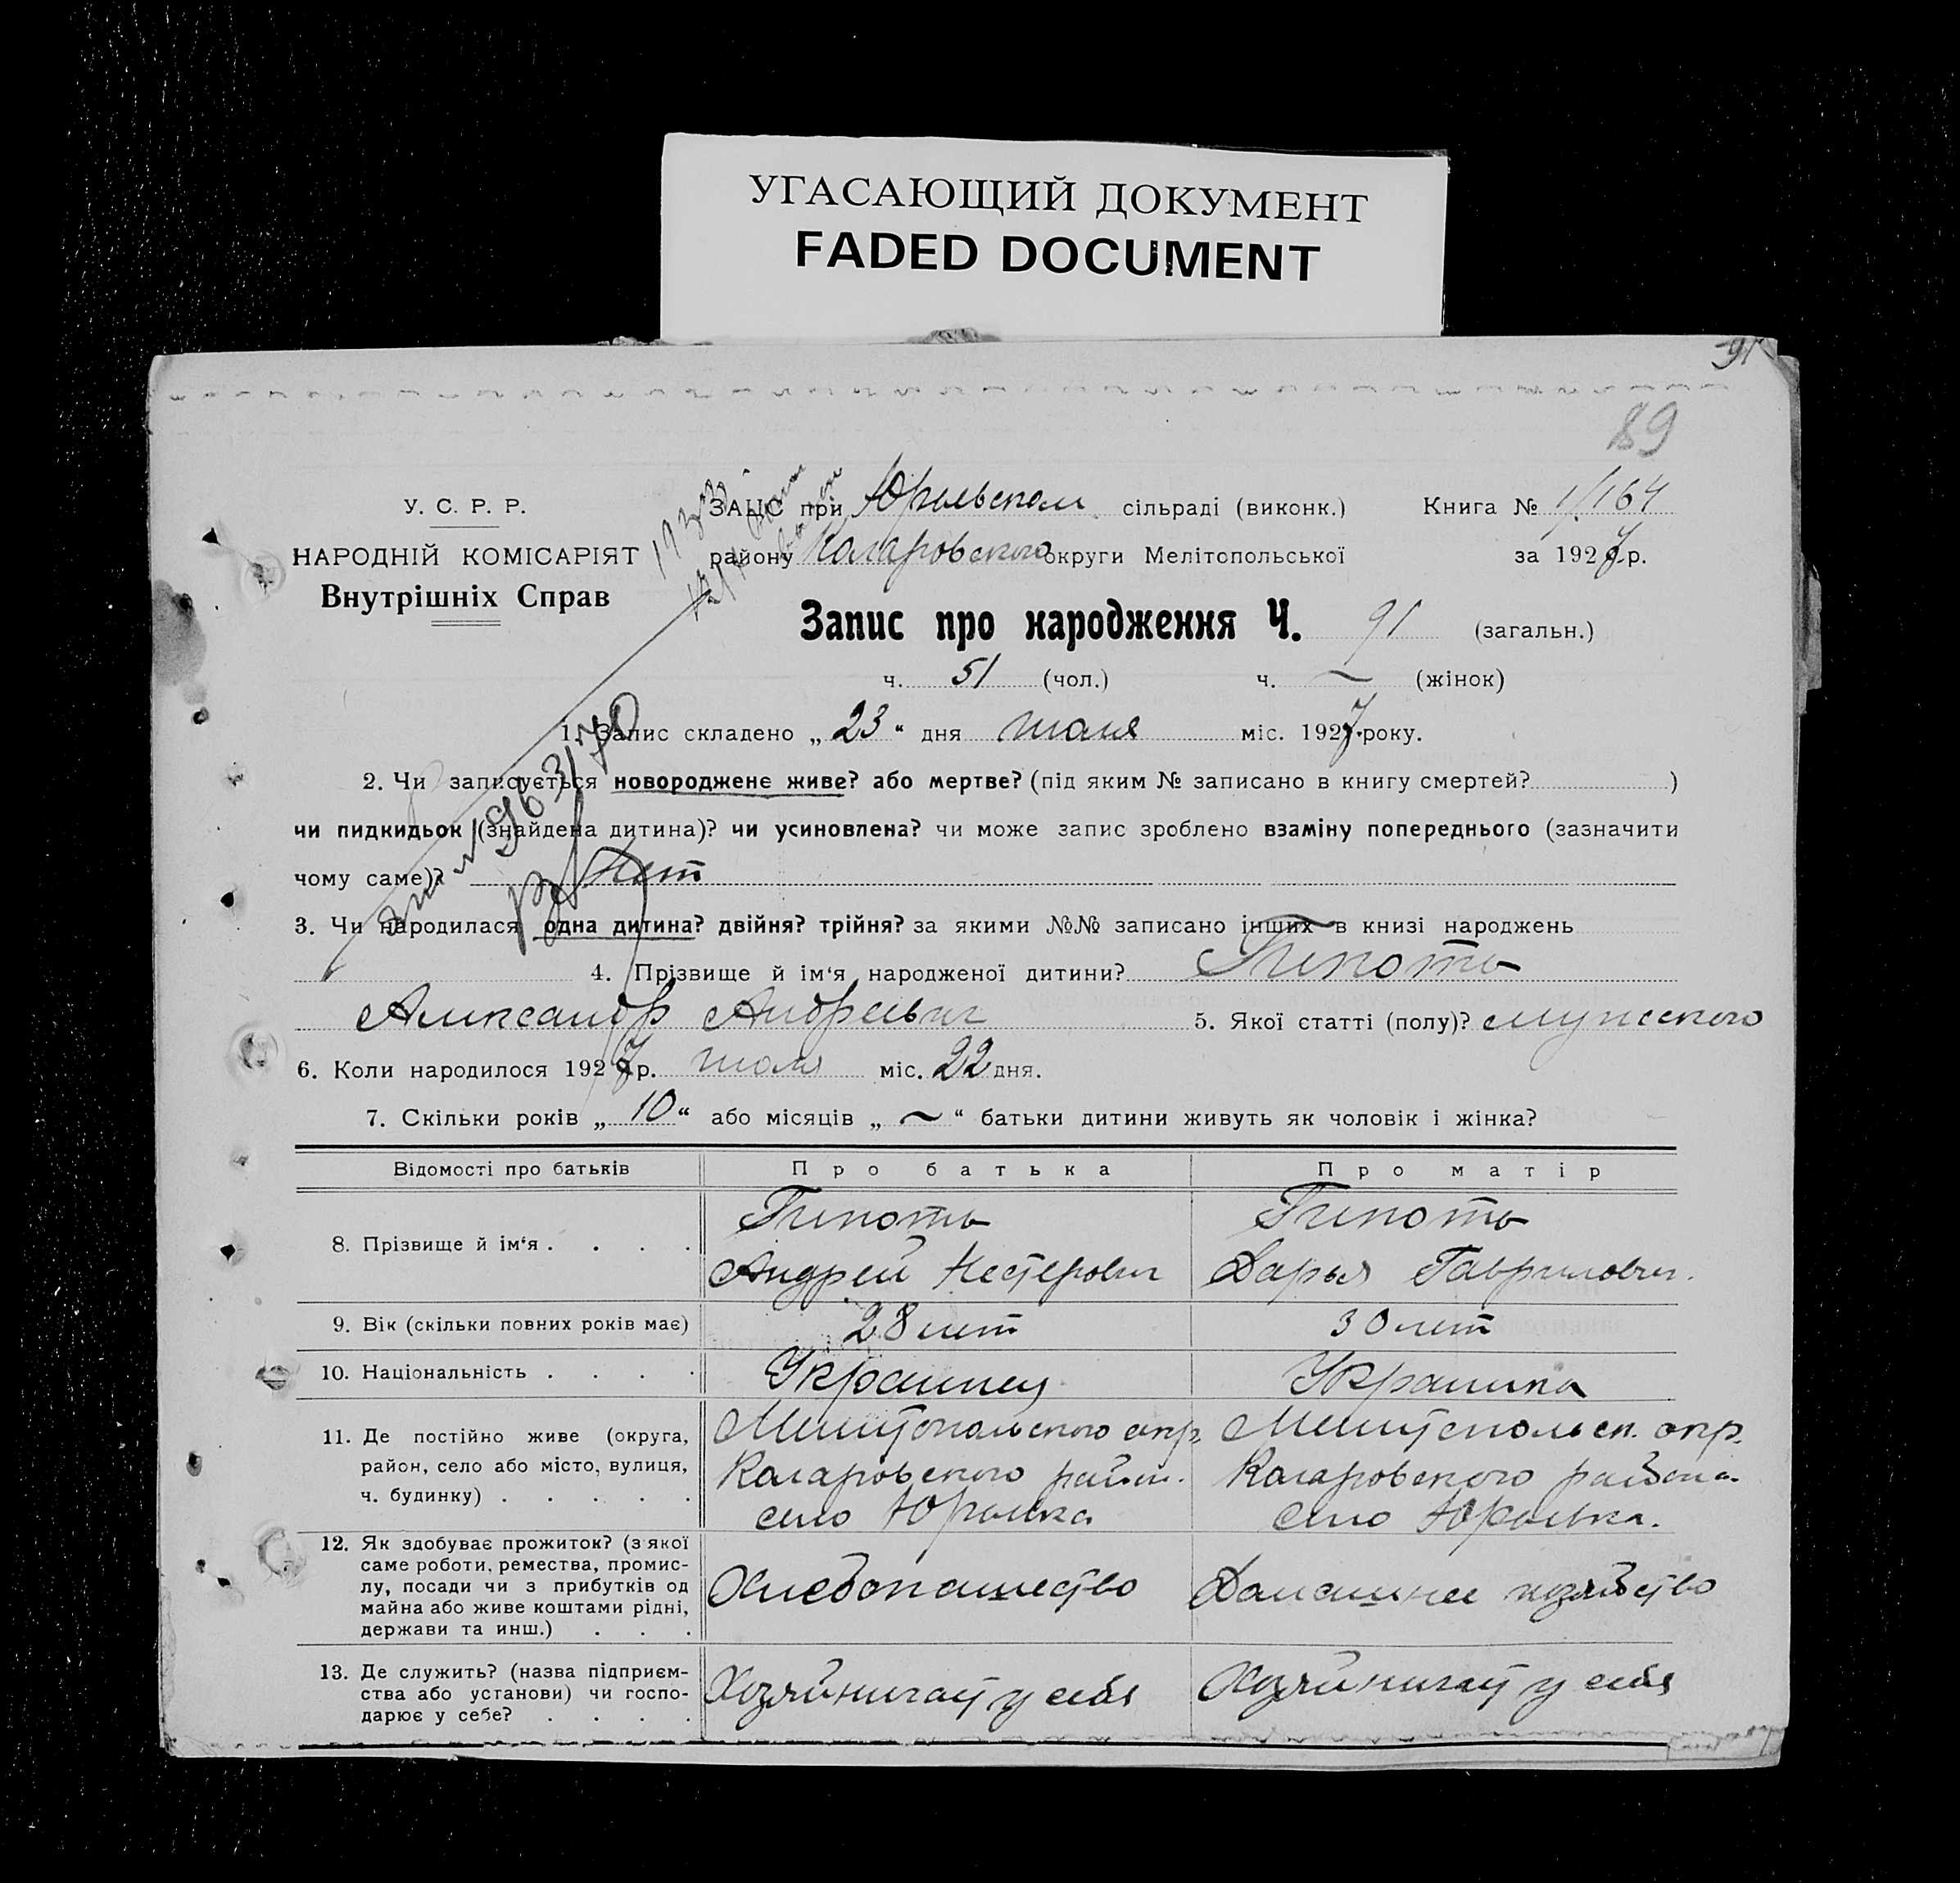 УГАСАЮЩИЙ ДОКУМЕНТ
FADED DOCUMENT
91
89
У. С. Р. Р.
НАРОДНІЙ КОМІСАРІЯТ
Внутрішніх Справ
ЗАЦС при Юрьевском сільраді (виконк.) Книга № 1/164
району Коларовского округи Мелітопольської за 1927 р.
Запис про народження Ч. 91 (загальн.)
ч. 51 (чол.) ч. ~ (жінок)
1. Запис складено „23“ дня июля міс. 1927 року.
2. Чи записується новороджене живе? або мертве? (під яким № записано в книгу смертей? )
чи пидкидьок (знайдена дитина)? чи усиновлена? чи може запис зроблено взаміну попереднього (зазначити
чому саме)? Нет
3. Чи народилася одна дитина? двійня? трійня? за якими №№ записано інших в книзі народжень
4. Прізвище й ім‘я народженої дитини? Гипоть
Александр Андреевич 5. Якої статті (полу)? мужского
6. Коли народилося 1927 р. июля міс. 22 дня.
7. Скільки років „10“ або місяців „~“ батьки дитини живуть як чоловік і жінка?
Відомості про батьків Про батька Про матір
8. Прізвище й ім‘я . . . . Гипоть Гипоть
Андрей Нестерович Дарья Гавриловн.
9. Вік (скільки повних років має) 28 лет 30 лет
10. Національність . . . . Украинец Украинка
11. Де постійно живе (округа, Мелитопольского окр. Мелитопольск. окр.
район, село або місто, вулиця, Коларовского район. Коларовского района
ч. будинку) . . . . . село Юрьевка село Юрьевка.
12. Як здобуває прожиток? (з якої
саме роботи, ремества, промис-
лу, посади чи з прибутків од Хлебопашество Домашнее хозяйство
майна або живе коштами рідні,
держави та инш.) . . .
13. Де служить? (назва підприєм-
ства або установи) чи госпо- Хозяйничает у себя Хозяйничает у себя
дарює у себе? . . . .